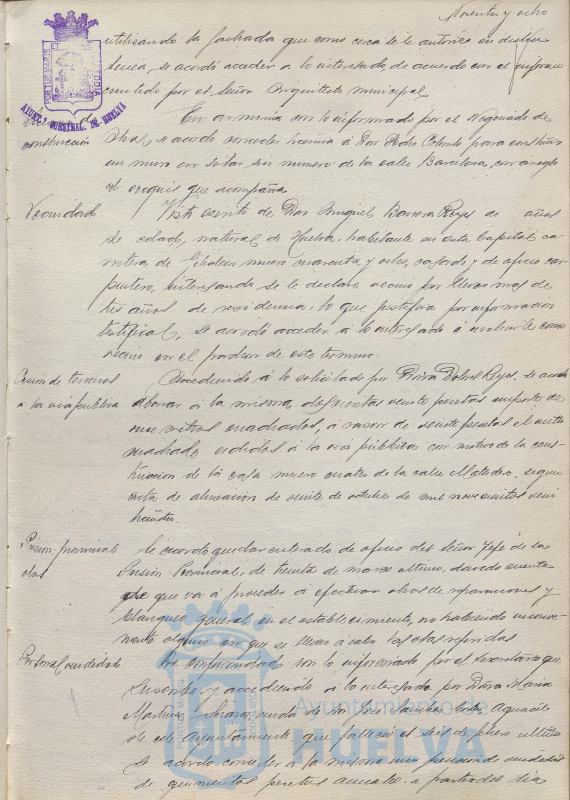 Noventa y ocho
utilizando la fachada que como cerca se le autorizó en
se acordó acceder a lo interesado, de acuerdo con el informe
emitido por el Señor Arquitecto municipal.
PORTUS MARIS ET TERRE CUSTODIA
AYUNT. CONSTNAL. DE HUELVA
construcción
En armonía con lo informado por el Negociado de
se acordó conceder licencia á Don Pedro para construir
un muro en solar sin número de la calle Barcelona, con arreglo
al croquis que acompaña
Vecindad
Visto escrito de Don Miguel Barrera Reyes de años
de edad, natural de Huelva, habitante en esta Capital, ca-
rretera de Gibraleón número cuarenta y ocho, casado y de oficio car-
pintero, interesando se le declare vecino por llevar mas de
tres años de residencia, lo que justifica por información
testifical, se acordó acceder á lo interesado é incluirle como
vecino en el padrón de este término.
Cesión de terrenos
a la via publica
Accediendo á lo solicitado por Doña Dolores Reyes, se acordó
abonar á la misma doscientas veinte pesetas importe de
once metros cuadrados, á razón de veinte pesetas el metro
cuadrado, cedidos á la vía pública con motivo de la cons-
trucción de la casa número cuatro de la calle Matadero, según
acta de alineación de veinte de octubre de mil novecientos vein
Prisión provincial
obras
Se acordó quedar enterado de oficio del Señor Jefe de la
Prisión Provincial, de treinta de marzo último, dando cuenta
de que va á proceder á efectuar obras de reparaciones y
blanqueo general en el establecimiento, no habiendo inconve-
niente alguno en que se lleven á cabo las obras referidas
Personal
De conformidad con lo informado por el Secretario que
suscribe y accediendo á lo interesado por Doña María
Martínez viuda de Don José Sánchez Alguacil
de este Ayuntamiento que falleció el seis de enero último
se acordó conceder á la misma una pensión de viudedad
de quinientas pesetas anuales á partir del día
Ayuntamiento de
HUELVA